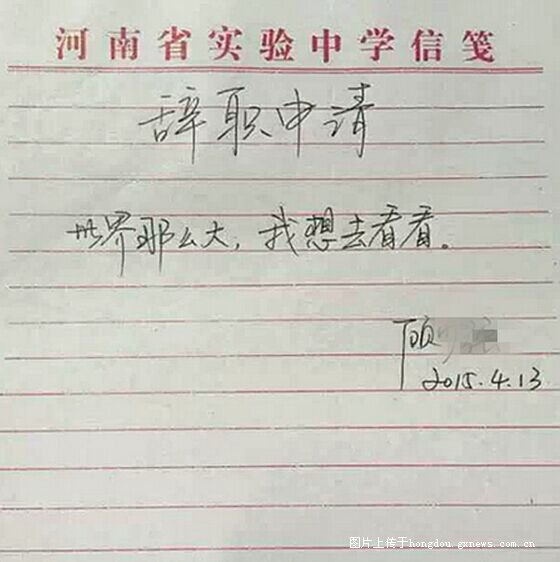 河南省实验中学信笺
辞职申请
世界那么大，我想去看看。
顾
2015.4.13
图片上传于hongdou.gxnews.com.cn